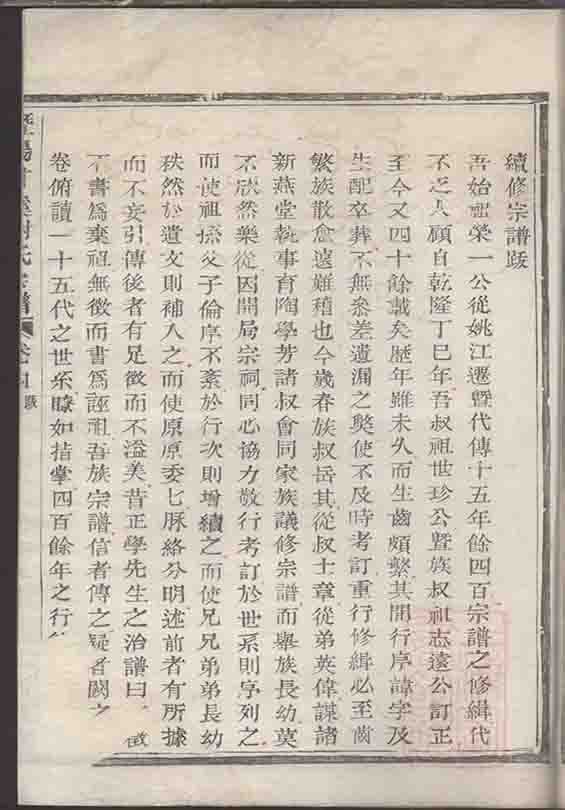 續修宗譜跋
吾始祖榮一公從姚江遷暨代傳十五年餘四百宗譜之修緝代
不乏人顧自乾隆丁巳年吾叔祖世珍公暨族叔祖志遠公訂正
至今又四十餘載矣歷年雖未久而生齒頗繁其間行序諱字及
生配卒葬不無叅差遺漏之獘使不及時考訂重行修緝必至齒
繁族散愈遠難稽也今歲春族叔岳其從叔士章從弟英偉謀諸
新燕堂執事育陶學芳諸叔會同家族議修宗譜而舉族長幼莫
不欣然樂從因開局宗祠同心協力敬行考訂於世系則序列之
而使祖孫父子倫序不紊於行次則增續之而使兄兄弟弟長幼
秩然於遺文則補入之而使原原委七脉絡分明述前者有所據
而不妄引傳後者有足徵而不溢美昔正學先生之治譜曰徵
不書爲棄祖無徵而書爲誣祖吾族宗譜信者傳之疑者闕之
卷俯讀一十五代之世系瞭如指掌四百餘年之行
氏宗譜
跋